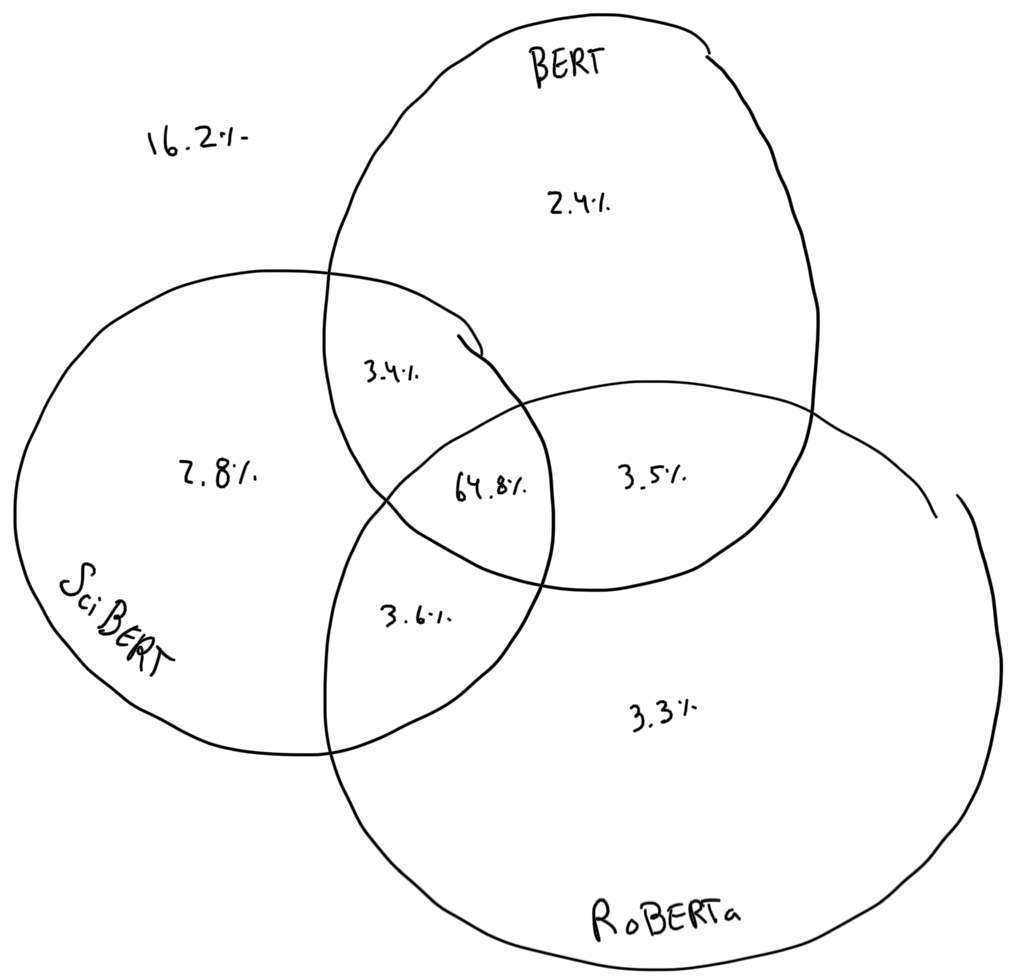 BERT
16.2%
2.4%
3.4%
2.8%
64.8%
3.5%
SciBERT
3.6%
3.3%
RoBERTa